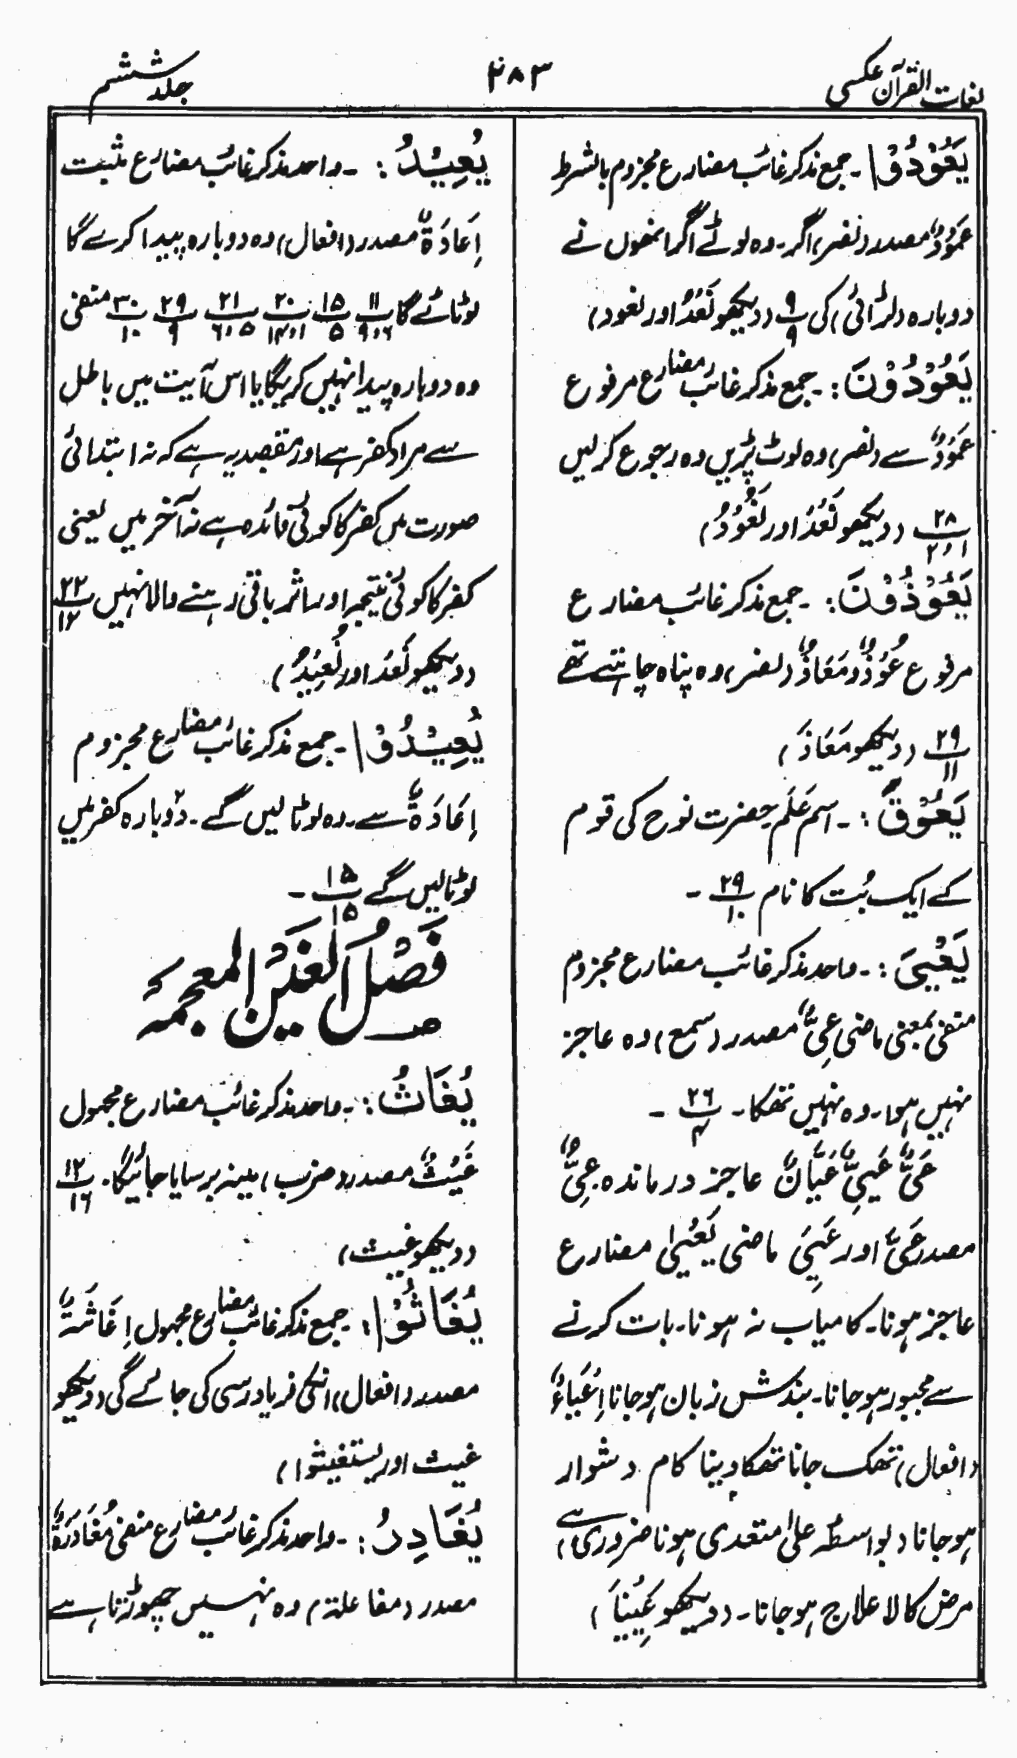 لغات القرآن عکسی
۲۸۳
جلد ششم
يَعُوْدُوْا ۔ جمع مذکر غائب مضارع مجزوم بالشرط
عَوْدٌ مصدر (نصر) اگر۔ وہ لوٹے اگر انھوں نے
دوبارہ (لڑائی) کی ۹/۹ (دیکھو نَعُدْ اور نعود)
يَعُوْدُوْنَ: ۔ جمع مذکر غائب مضارع مرفوع
عَوْدٌ سے (نصر) وہ لوٹ پڑیں وہ رجوع کرلیں
۲۸/۲،۱ (دیکھو نَعُدْ اور نَعُوْدُ)
يَعُوْذُوْنَ: ۔ جمع مذکر غائب مضارع
مرفوع عُوْذٌ و مَعَاذٌ (نصر) وہ پناہ چاہتے تھے
۲۹/۱۱ (دیکھو مَعَاذَ)
يَعُوْقَ: ۔ اسم عَلَم حضرت نوح کی قوم
کے ایک بُت کا نام ۲۹/۱۰ ۔
يَعْيَ: ۔ واحد مذکر غائب مضارع مجزوم
منفی بمعنی ماضی عِیٌّ مصدر (سمع) وہ عاجز
نہیں ہوا۔ وہ نہیں تھکا۔ ۲۶/۴ ۔
عَیٌّ عَیِیٌّ عَیَّانٌ عاجز درماندہ عِیٌّ
مصدر عَیَّ اور عَیِیَ ماضی یَعْیٰی مضارع
عاجز ہونا۔ کامیاب نہ ہونا۔ بات کرنے
سے مجبور ہوجانا۔ بندش زبان ہوجانا اِعْيَاءٌ
(افعال) تھک جانا تھکا دینا کام دشوار
ہوجانا (بواسطہ علیٰ متعدی ہونا ضروری ہے)
مرض کا لاعلاج ہوجانا۔ (دیکھو عَیِیْنَا)
يُعِيْدُ: ۔ واحد مذکر غائب مضارع مثبت
اِعَادَةٌ مصدر (افعال) وہ دوبارہ پیدا کرے گا
لوٹائے گا ۱۱/۹،۶ ۱۵/۵ ۲۰/۱۴،۱ ۲۱/۶،۵ ۲۹/۹ ۳۰/۱۰ منفی
وہ دوبارہ پیدا نہیں کریگا یا اس آیت میں باطل
سے مراد کفر ہے اور مقصد یہ ہے کہ نہ ابتدائی
صورت میں کفر کا کوئی فائدہ ہے نہ آخر میں یعنی
کفر کا کوئی نتیجہ اور اثر باقی رہنے والا نہیں ۲۲/۱۲
(دیکھو نَعُدْ اور نُعِيْدُ)
يُعِيْدُوْا ۔ جمع مذکر غائب مضارع مجزوم
اِعَادَةٌ سے۔ وہ لوٹا لیں گے۔ دوبارہ کفر میں
لوٹالیں گے ۱۵/۱۵ ۔
فَصْلُ الْغَيْن المعجمہ
يُغَاثُ: ۔ واحد مذکر غائب مضارع مجہول
غَيْثٌ مصدر (ضرب) مینہ برسایا جائیگا۔ ۱۲/۱۶
(دیکھو غیث)
يُغَاثُوْا: ۔ جمع مذکر غائب مضارع مجہول اِغَاثَةٌ
مصدر (افعال) انکی فریادرسی کی جائے گی (دیکھو
غیث اور یستغیثوا)
يُغَادِرُ: ۔ واحد مذکر غائب مضارع منفی مُغَادَرَةٌ
مصدر (مفاعلۃ) وہ نہیں چھوڑتا ہے